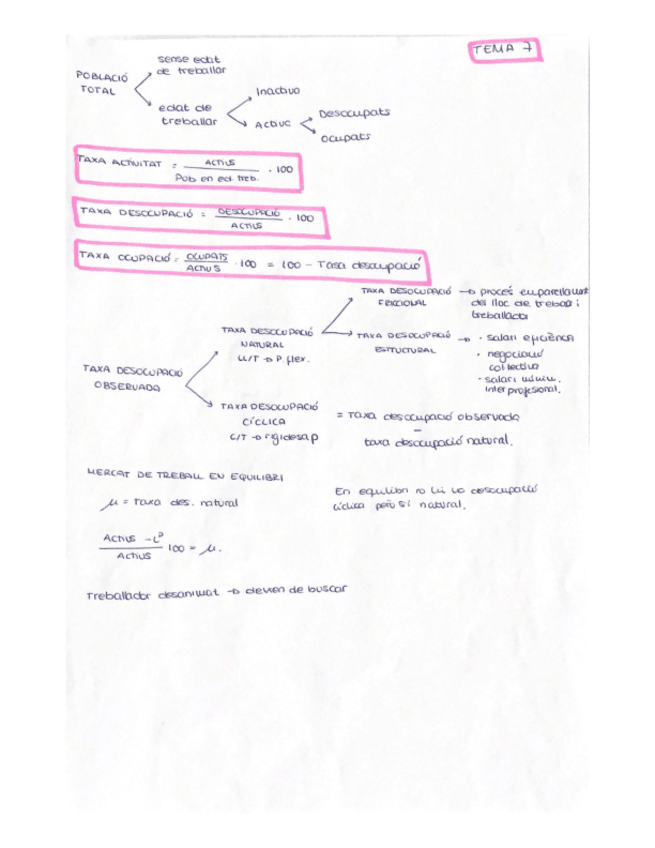 TEMA 7
POBLACIÓ
TOTAL
sense edat
de treballar
edat de
treballar
Inactiva
Activa
Desocupats
ocupats
TAXA ACTIVITAT = ACTIUS / Pob. en ed. treb. · 100
TAXA DESOCUPACIÓ = DESOCUPACIÓ / ACTIUS · 100
TAXA OCUPACIÓ = OCUPATS / ACTIUS · 100 = 100 - Taxa desocupació
TAXA DESOCUPACIÓ
OBSERVADA
TAXA DESOCUPACIÓ
NATURAL
LL/T → P flex.
TAXA DESOCUPACIÓ
FRICCIONAL
→ procés emparellament
del lloc de treball i
treballador
TAXA DESOCUPACIÓ
ESTUCTURAL
→ · salari eficiència
· negociació
col·lectiva
· salari mínim.
interprofesional.
TAXA DESOCUPACIÓ
CÍCLICA
C/T → rigidesa p
= Taxa desocupació observada
-
taxa desocupació natural.
MERCAT DE TREBALL EN EQUILIBRI
μ = taxa des. natural
En equilibri no hi ha desocupació
cíclica però sí natural.
ACTIUS - Lº / ACTIUS 100 = μ.
Treballador desanimat → deixen de buscar